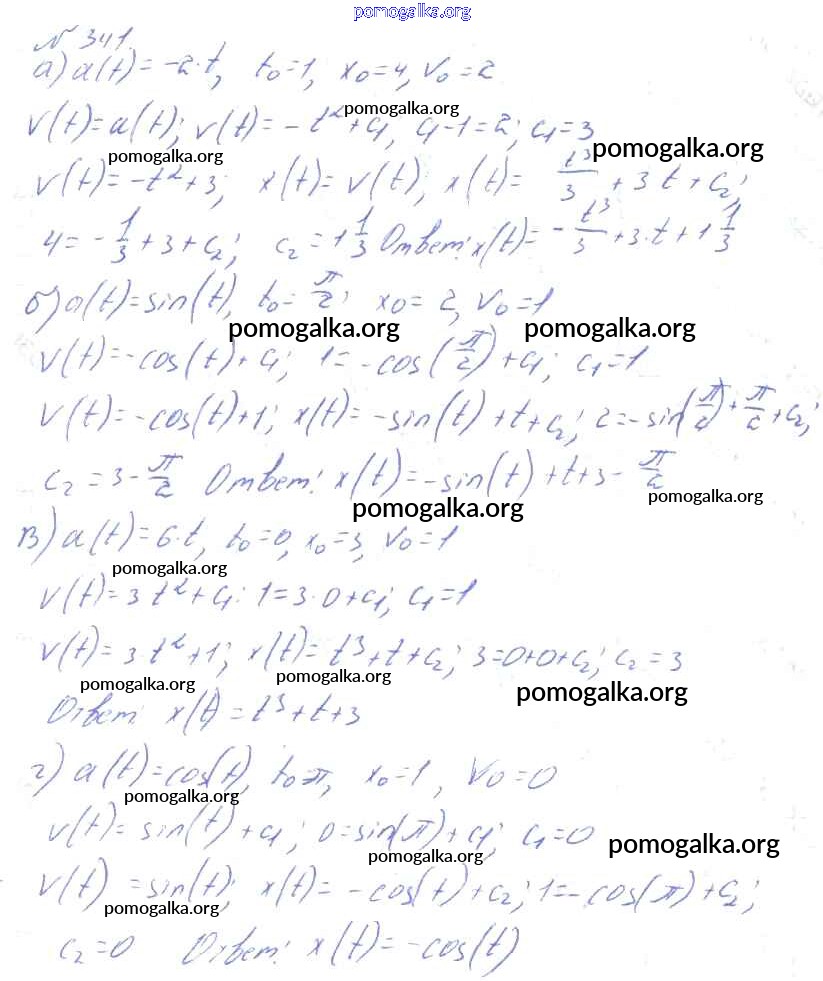 pomogalka.org
№ 341.
а) a(t) = -2·t, t₀=1, x₀=4, v₀=2
pomogalka.org
v(t)=a(t); v(t)= -t²+c₁, c₁-1=2; c₁=3
pomogalka.org pomogalka.org
v(t)=-t²+3; x(t)=v(t); x(t)= t³/3 + 3t + c₂;
4=-1/3+3+c₂; c₂=1 1/3 Ответ: x(t)= -t³/3+3·t+1 1/3
б) a(t)=sin(t), t₀=π/2; x₀=2, v₀=1
pomogalka.org pomogalka.org
v(t)=-cos(t)+c₁; 1=-cos(π/2)+c₁; c₁=1
v(t)=-cos(t)+1; x(t)=-sin(t)+t+c₂; 2=-sin(π/2)+π/2+c₂;
c₂=3-π/2 Ответ: x(t)=-sin(t)+t+3-π/2
pomogalka.org
pomogalka.org
в) a(t)=6·t, t₀=0, x₀=3, v₀=1
pomogalka.org
v(t)=3t²+c₁: 1=3·0+c₁; c₁=1
v(t)=3t²+1; x(t)=t³+t+c₂; 3=0+0+c₂; c₂=3
pomogalka.org pomogalka.org pomogalka.org
Ответ: x(t)=t³+t+3
г) a(t)=cos(t), t₀=π, x₀=1, v₀=0
pomogalka.org
v(t)=sin(t)+c₁; 0=sin(π)+c₁; c₁=0
pomogalka.org pomogalka.org
v(t)=sin(t); x(t)=-cos(t)+c₂; 1=-cos(π)+c₂;
pomogalka.org
c₂=0 Ответ: x(t)=-cos(t)